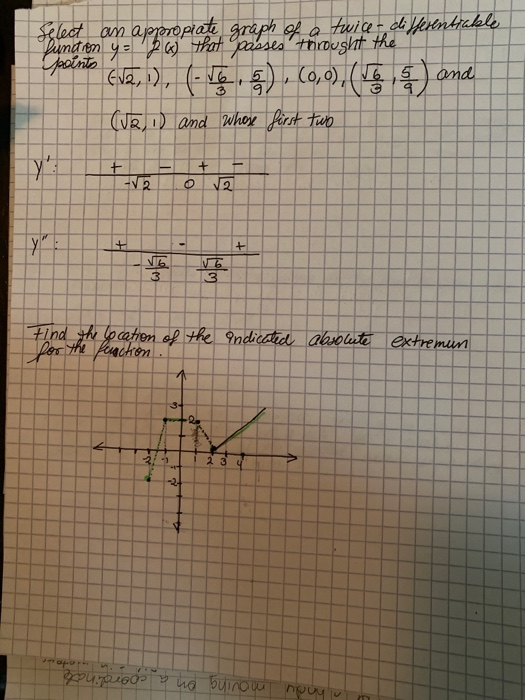 Select an appropiate graph of a twice-differentiable
function y = f(x) that passes throught the
points (-√2, 1), (-√6/3, 5/9), (0,0), (√6/3, 5/9) and
(√2, 1) and whose first two
y': + - + -
-√2 0 √2
y": + - +
-√6/3 √6/3
Find the location of the indicated absolute extremun
for the function.
3
2
-2 -1 1 2 3 4
-1
-2
moving on a coordinate